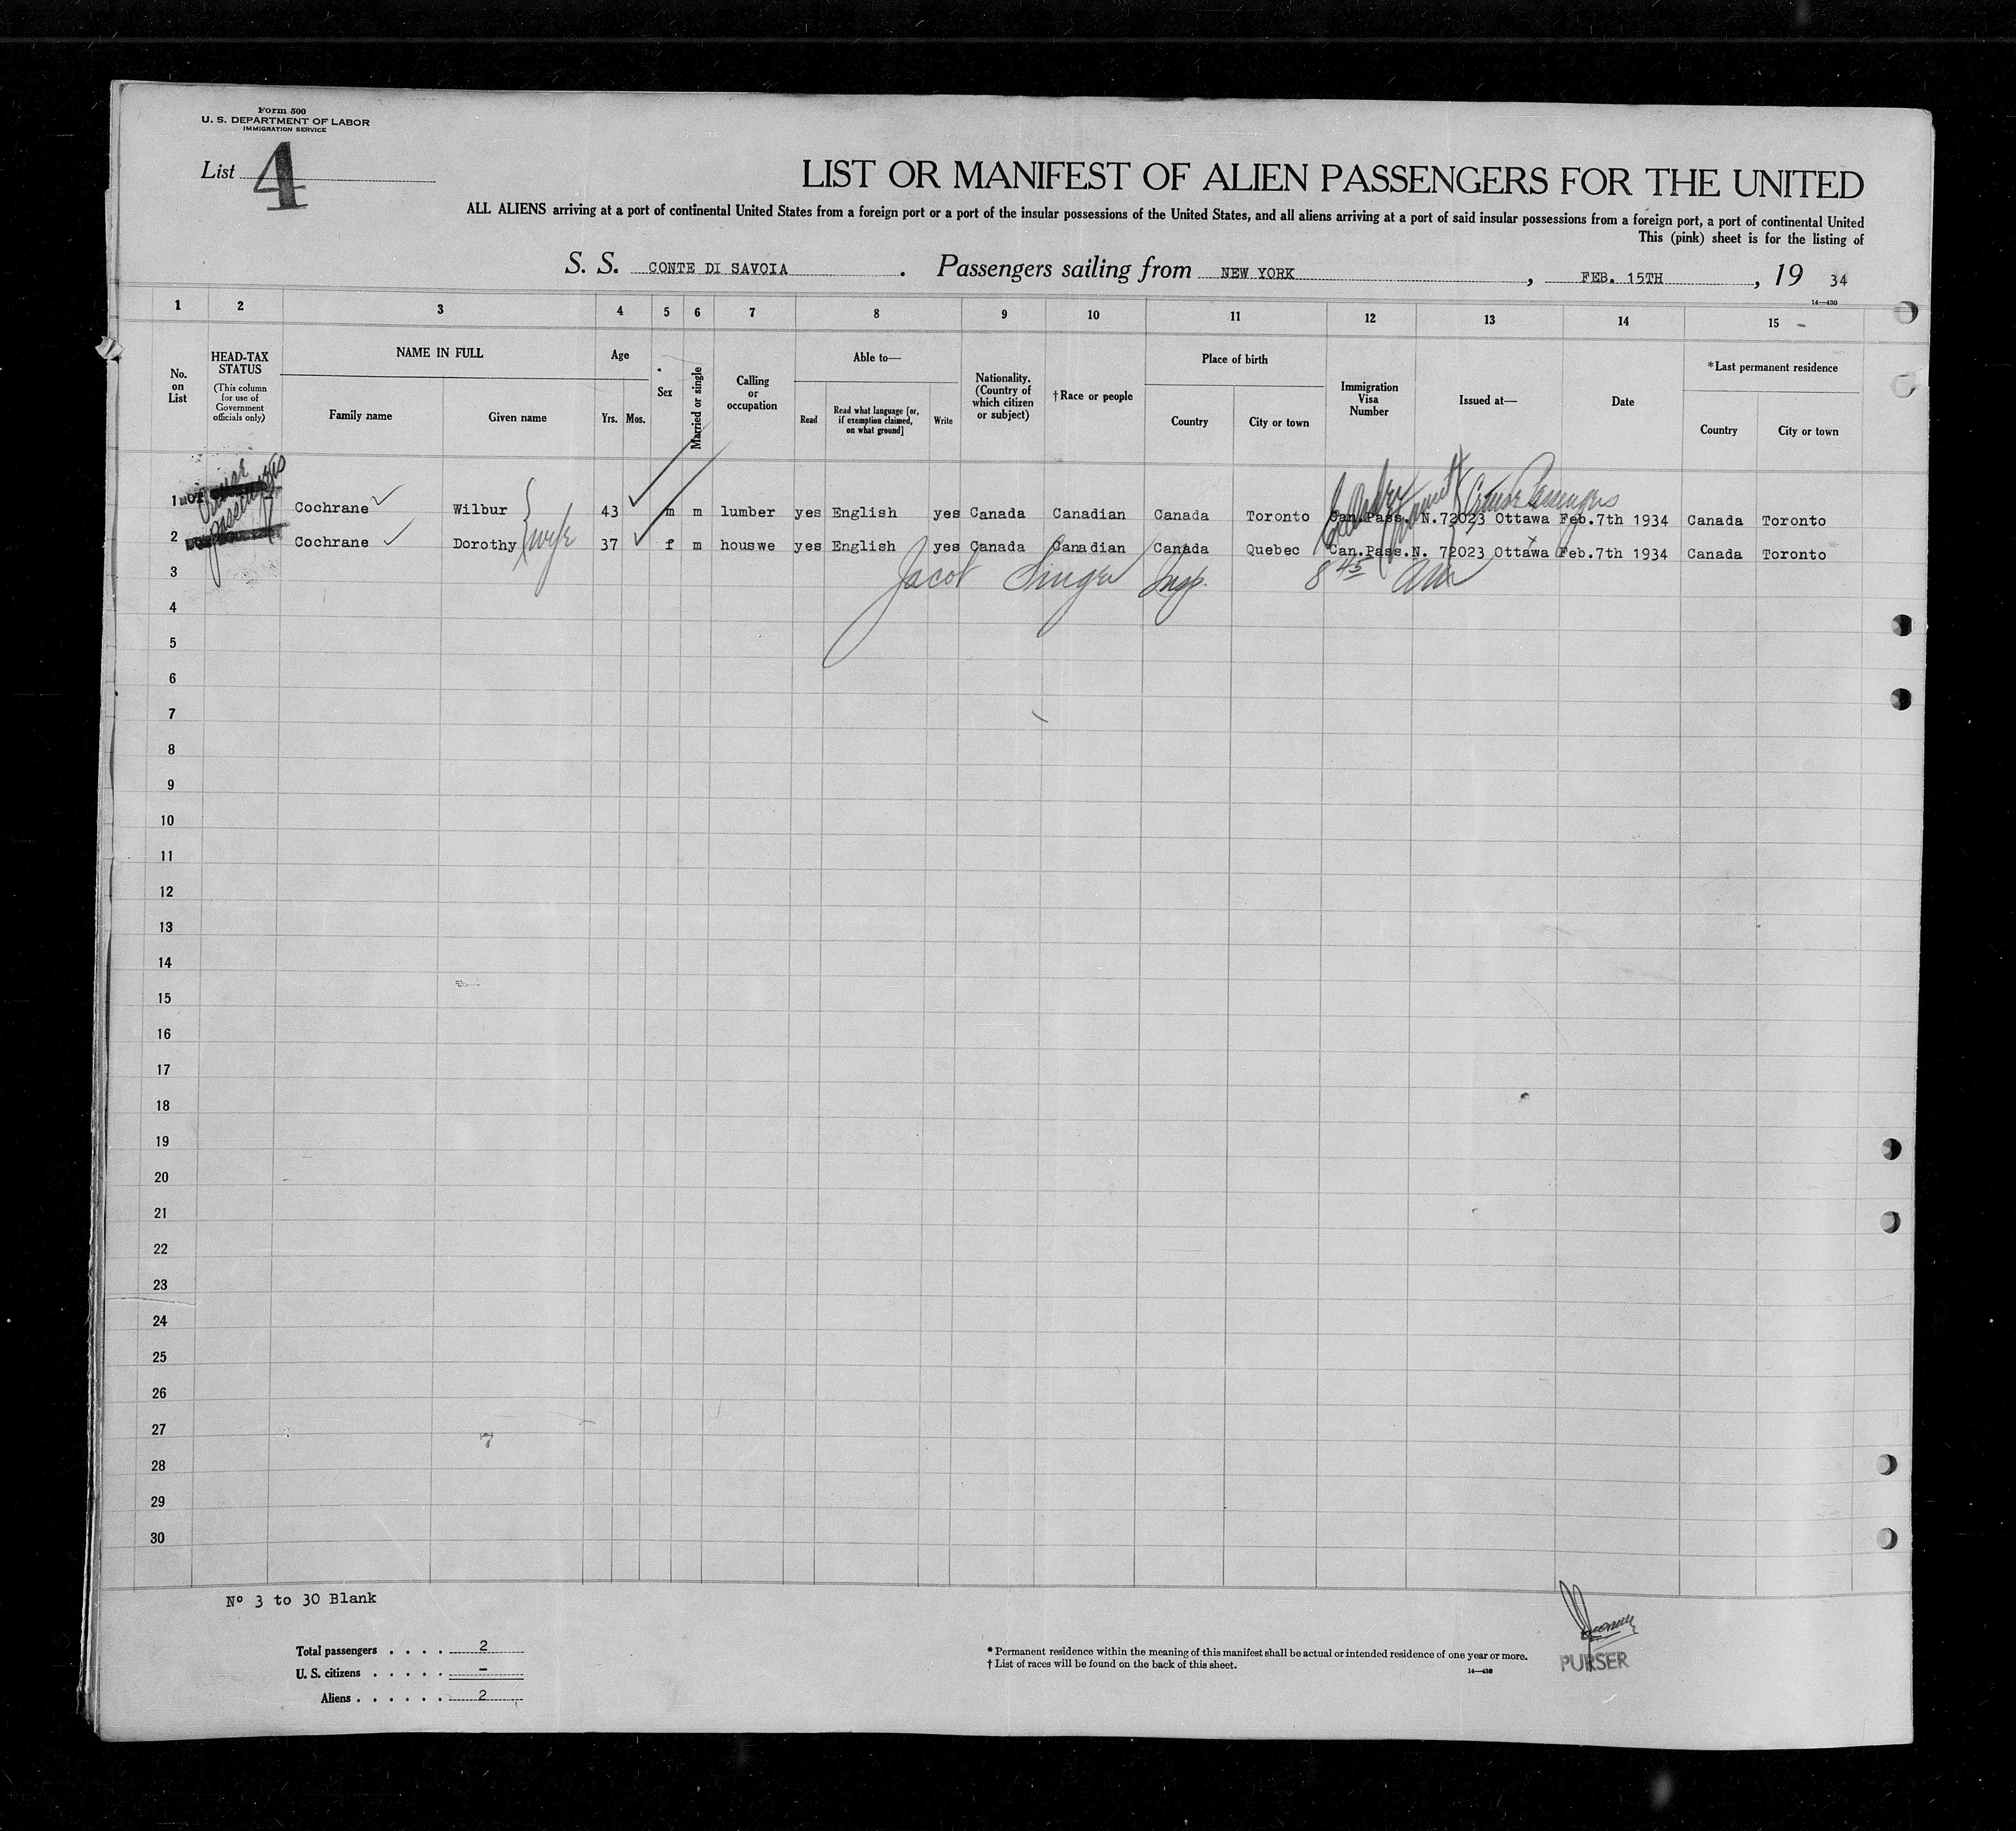 Form 500
U. S. DEPARTMENT OF LABOR
IMMIGRATION SERVICE
List 4
LIST OR MANIFEST OF ALIEN PASSENGERS FOR THE UNITED
ALL ALIENS arriving at a port of continental United States from a foreign port or a port of the insular possessions of the United States, and all aliens arriving at a port of said insular possessions from a foreign port, a port of continental United
This (pink) sheet is for the listing of
S. S. CONTE DI SAVOIA . Passengers sailing from NEW YORK , FEB. 15TH , 19 34
14—430
1 2 3 4 5 6 7 8 9 10 11 12 13 14 15
No. on List
HEAD-TAX STATUS (This column for use of Government officials only)
NAME IN FULL
Family name
Given name
Age
Yrs. Mos.
Sex
Married or single
Calling or occupation
Able to—
Read
Read what language [or, if exemption claimed, on what ground]
Write
Nationality. (Country of which citizen or subject)
†Race or people
Place of birth
Country
City or town
Immigration Visa Number
Issued at—
Date
*Last permanent residence
Country
City or town
Cruise Passengers
Cruise Passengers
1 NOT Cochrane Wilbur 43 m m lumber yes English yes Canada Canadian Canada Toronto Can.Pass. N.72023 Ottawa Feb.7th 1934 Canada Toronto
2 Cochrane Dorothy wife 37 f m houswe yes English yes Canada Canadian Canada Quebec Can.Pass.N. 72023 Ottawa Feb.7th 1934 Canada Toronto
3 Jacob Singer Insp. 8 45
4
5
6
7
8
9
10
11
12
13
14
15
16
17
18
19
20
21
22
23
24
25
26
27
28
29
30
Nº 3 to 30 Blank
Total passengers . . . . 2
U. S. citizens . . . . . –
Aliens . . . . . . 2
* Permanent residence within the meaning of this manifest shall be actual or intended residence of one year or more.
† List of races will be found on the back of this sheet.
14—430
PURSER